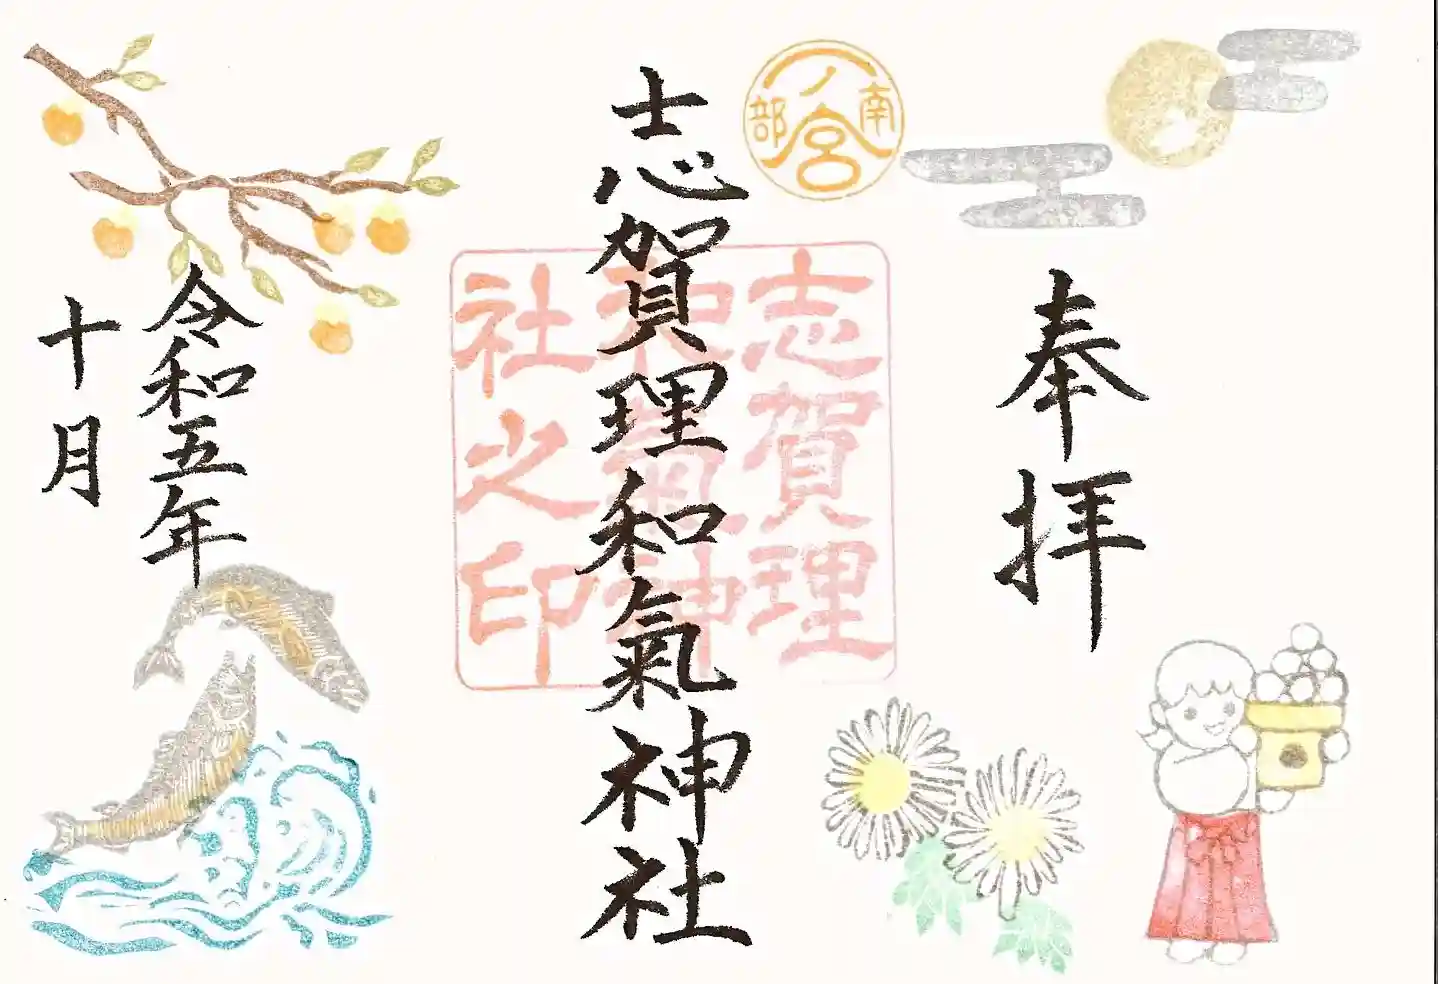 奉拝
南部
一ノ宮
志賀理
和氣神
社之印
志賀理和氣神社
令和五年
十月